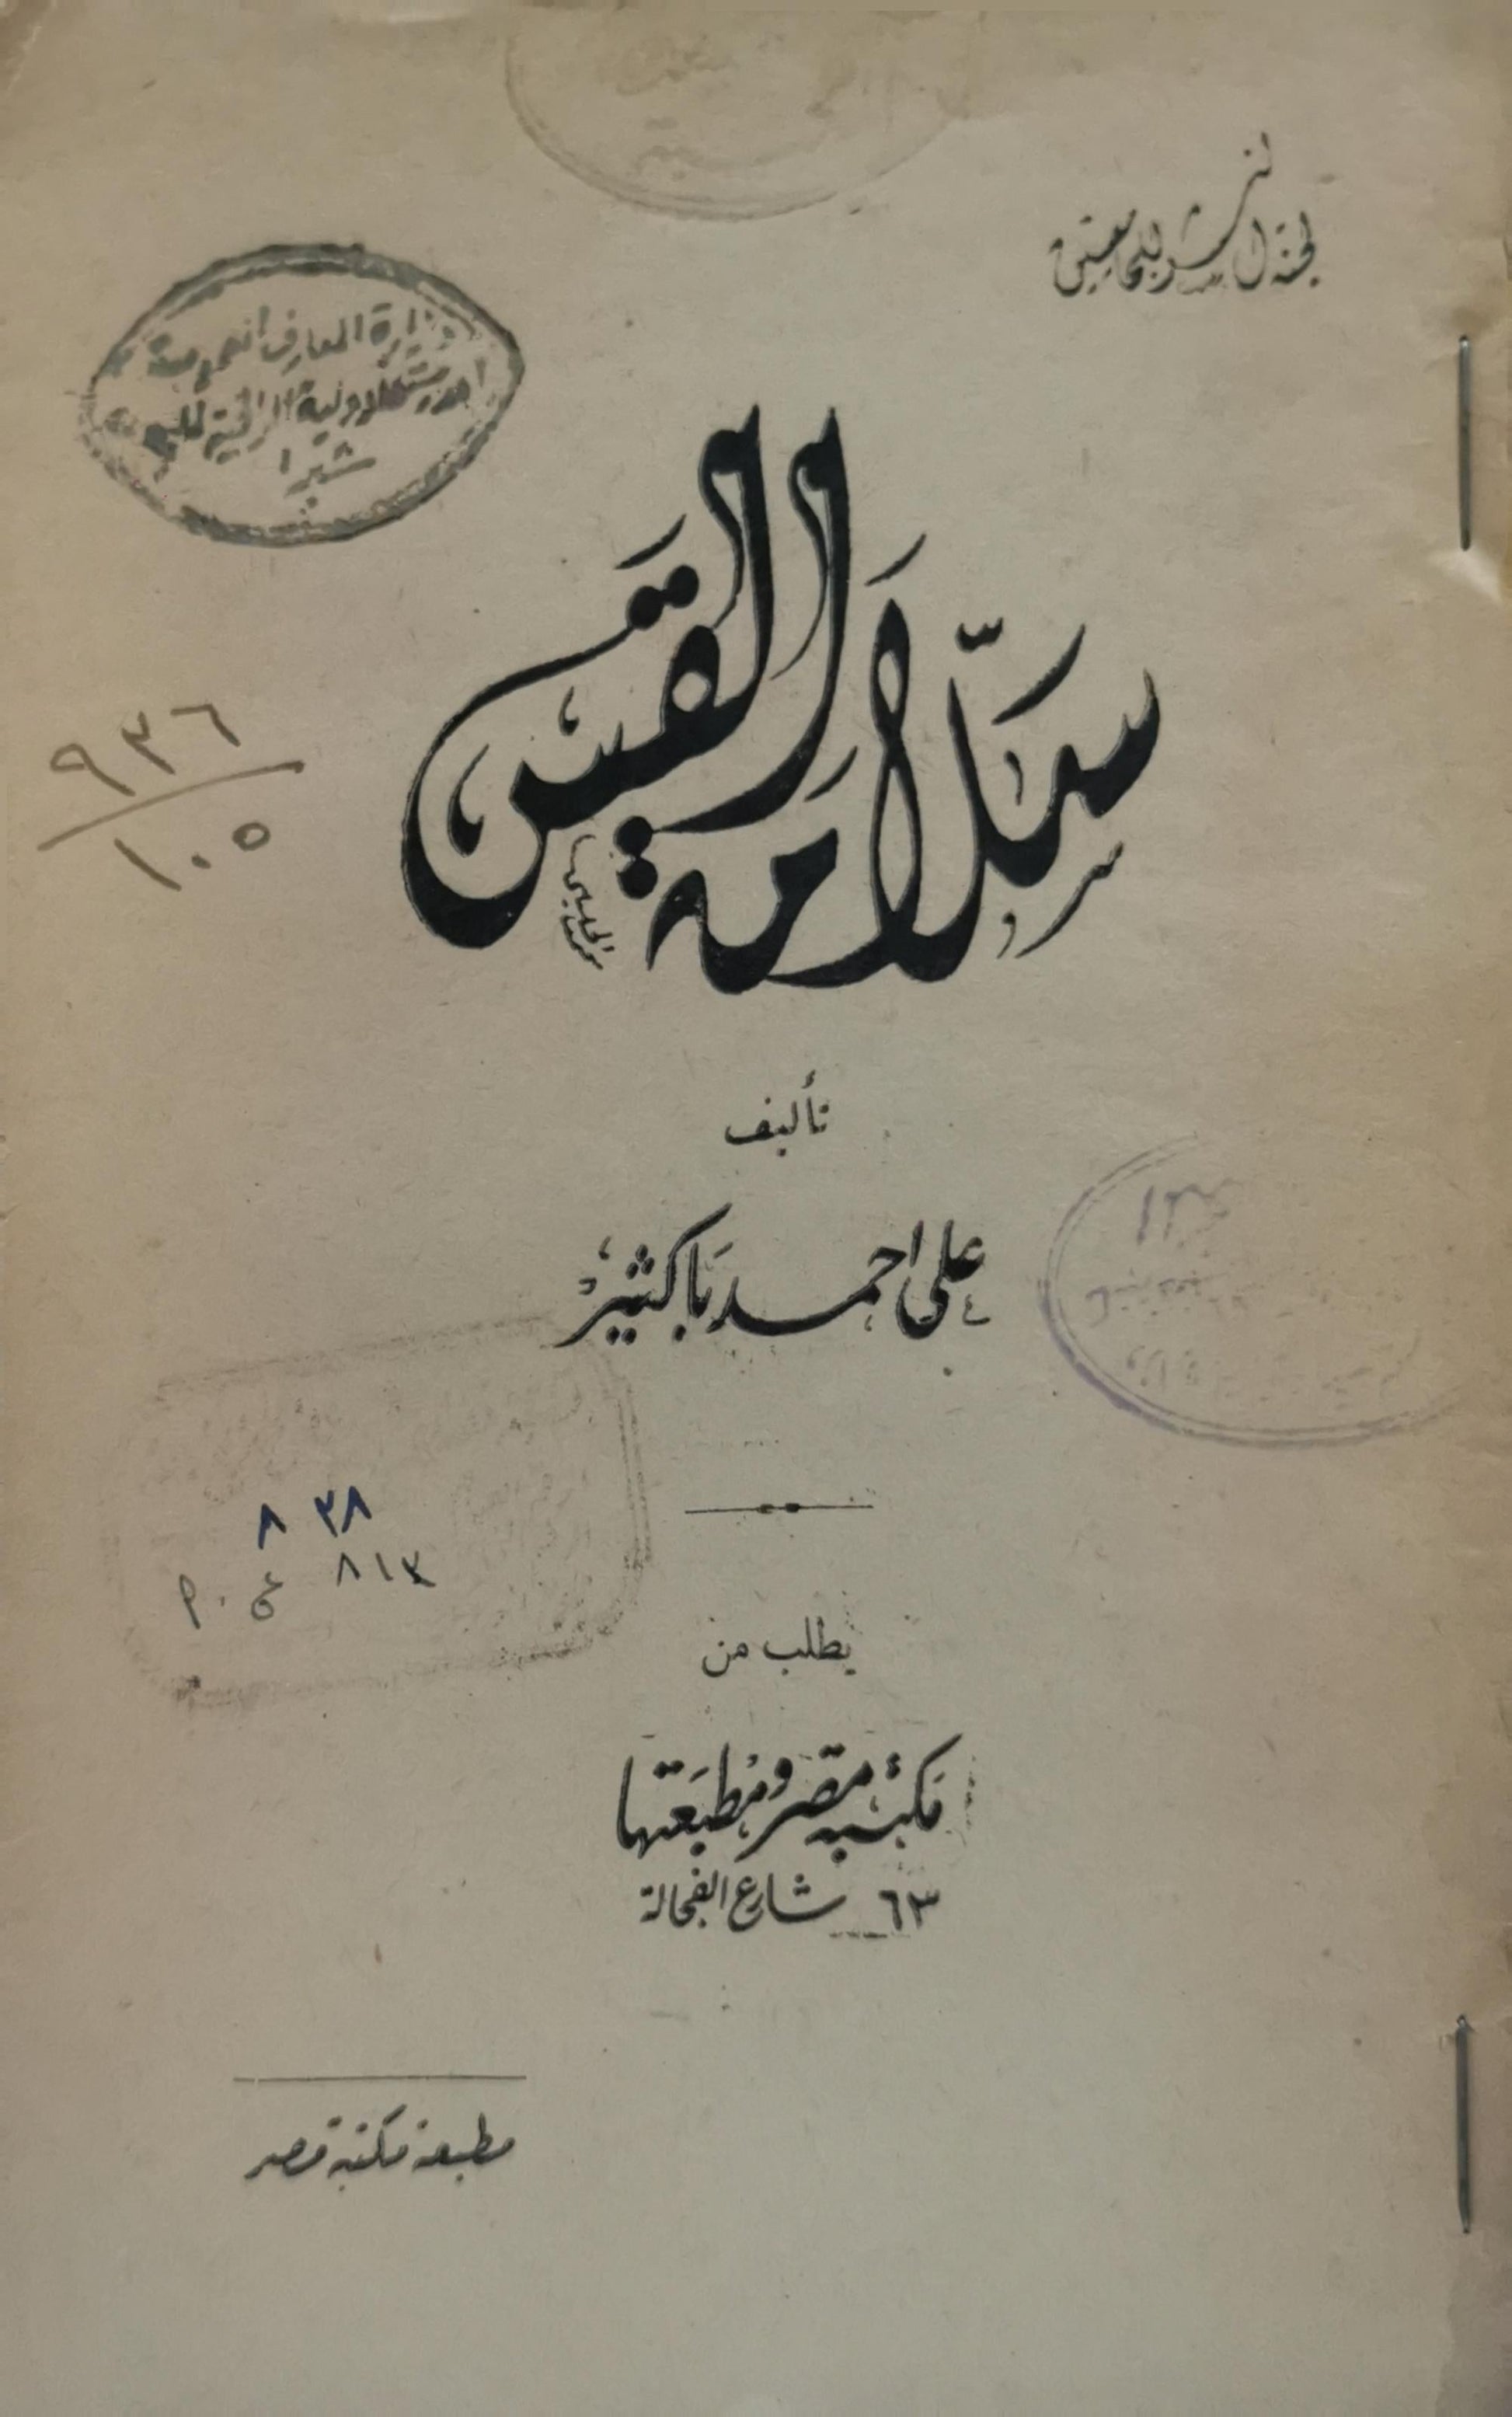 لجنة النشر للجامعيين
وزارة المعارف العمومية
الراقية
شبرا
سلّامة القس
٩٣٦
١٠٥
تأليف
على احمد باكثير
٨ ٣٨
٨١٣
يطلب من
مكتبة مصر ومطبعتها
٦٣ شارع الفجالة
مطبعة مكتبة مصر